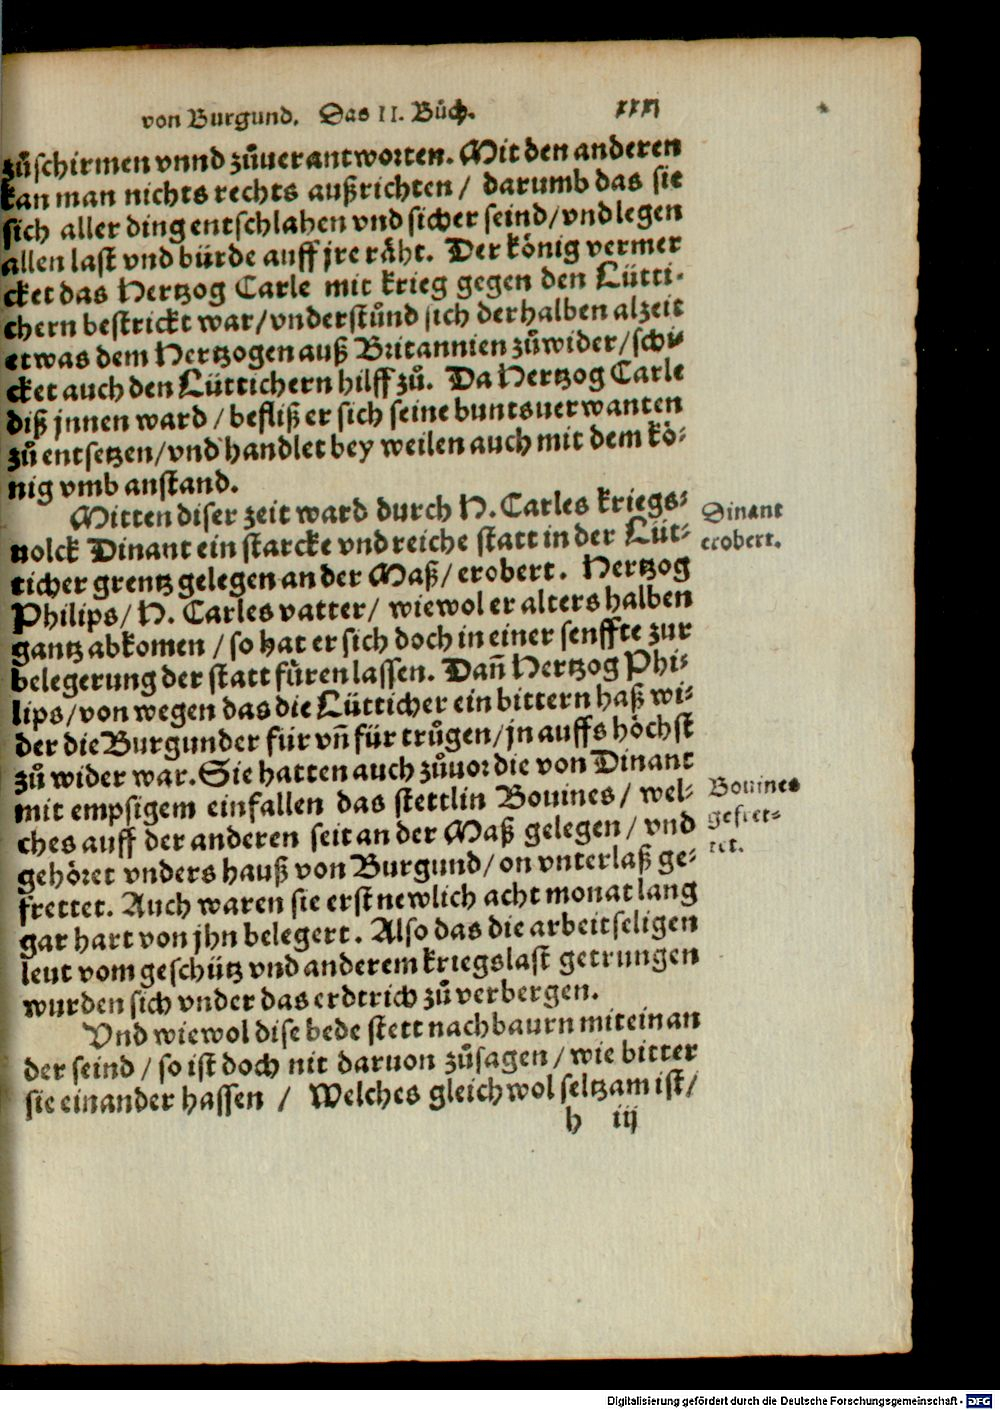 von Burgund. Das II. Bůch. xxxj
zůschirmen vnnd zůuerantworten. Mit den anderen
kan man nichts rechts außrichten / darumb das sie
sich aller ding entschlahen vnd sicher seind/vnd legen
allen last vnd bürde auff jre räht. Der könig vermer
cket das Hertzog Carle mit krieg gegen den Lütti-
chern bestrickt war/vnderstůnd sich derhalben alzeit
etwas dem Hertzogen auß Britannien zůwider/schi-
cket auch den Lüttichern hilff zů. Da Hertzog Carle
diß jnnen ward / befliß er sich seine buntsuerwanten
zů entsetzen/vnd handlet bey weilen auch mit dem kö-
nig vmb anstand.
Mitten diser zeit ward durch H. Carles kriegs-
uolck Dinant ein starcke vnd reiche statt in der Lüt-
ticher grentz gelegen an der Maß/ erobert. Hertzog
Philips/ H. Carles vatter/ wiewol er alters halben
gantz abkomen / so hat er sich doch in einer senffte zur
belegerung der statt füren lassen. Dañ Hertzog Phi-
lips/von wegen das die Lütticher ein bittern haß wi-
der die Burgunder für vñ für trůgen/jn auffs höchst
zů wider war. Sie hatten auch zůuor die von Dinant
mit empsigem einfallen das stettlin Bouines / wel-
ches auff der anderen seit an der Maß gelegen / vnd
gehöret vnders hauß von Burgund/on vnterlaß ge-
frettet. Auch waren sie erst newlich acht monat lang
gar hart von jhn belegert. Also das die arbeitseligen
leut vom geschütz vnd anderem kriegslast getrungen
wurden sich vnder das erdtrich zů verbergen.
Vnd wiewol dise bede stett nachbaurn mitein an
der seind / so ist doch nit daruon zůsagen / wie bitter
sie einander hassen / Welches gleichwol seltzam ist/
h iij
Dinant
erobert.
Bouines
gefret-
tet.
Digitalisierung gefördert durch die Deutsche Forschungsgemeinschaft - DFG